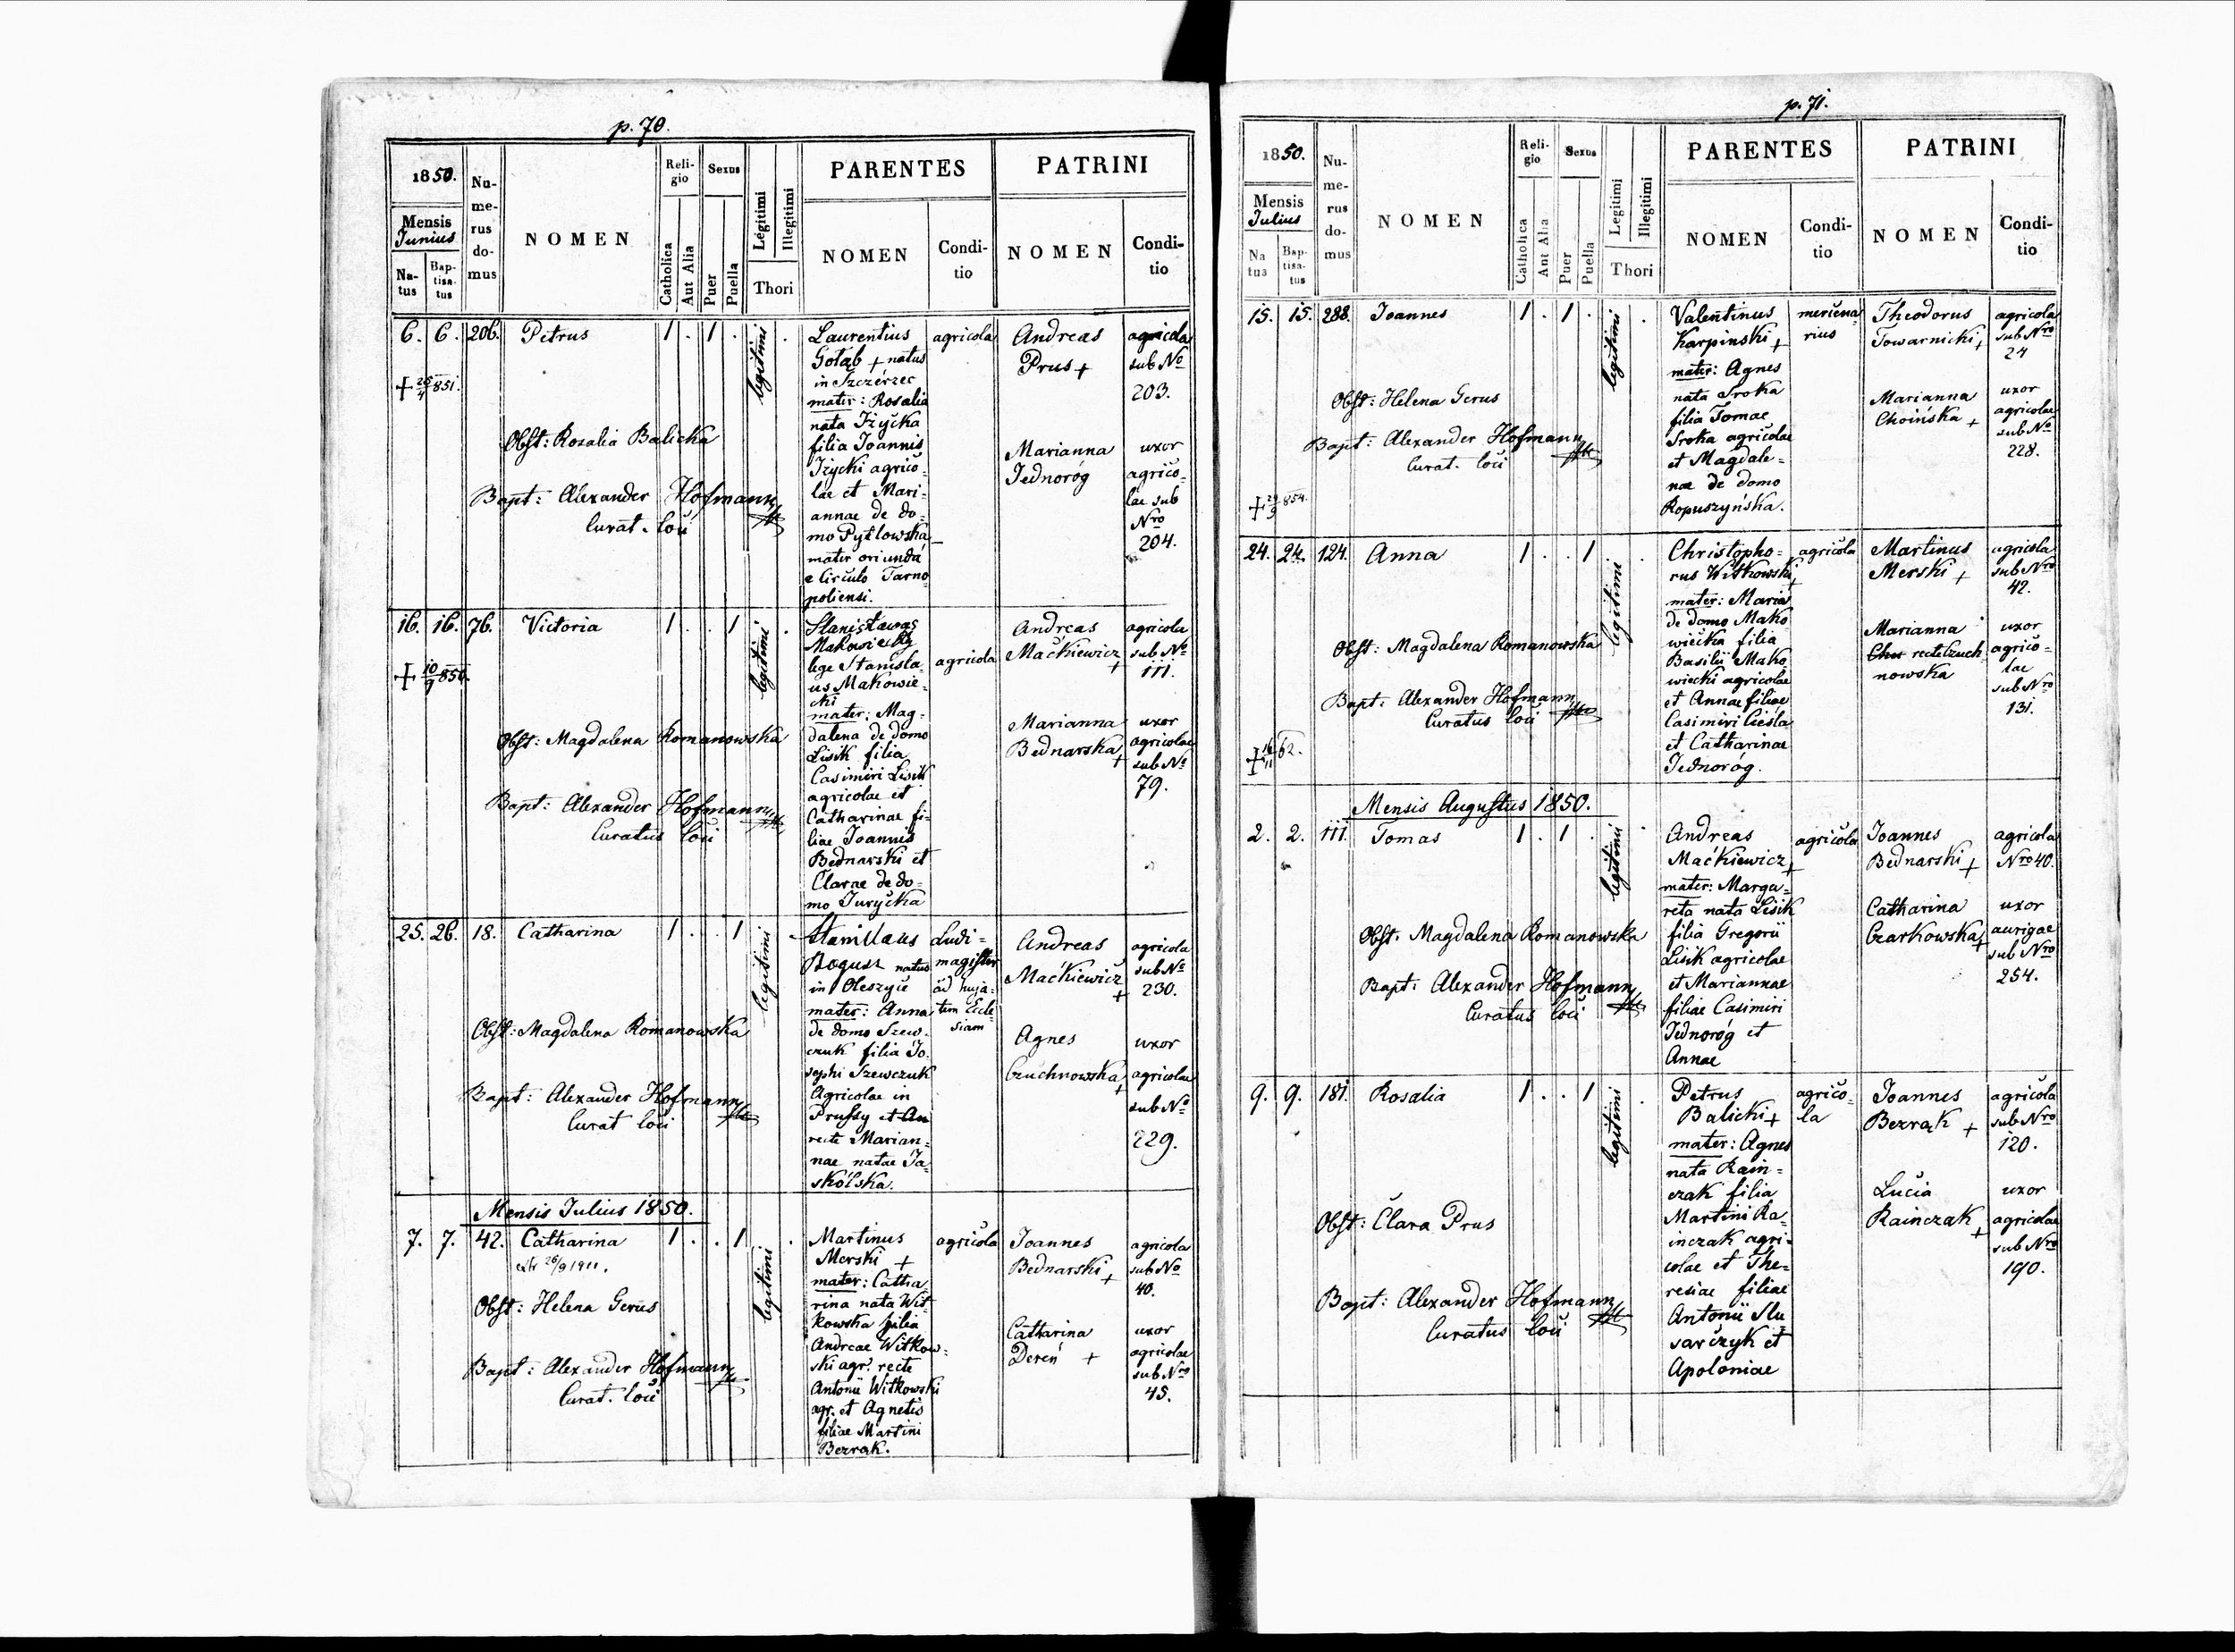 p. 70.
1850.
Mensis
Junius
Natus
Baptisatus
Numerus domus
NOMEN
Religio
Catholica
Aut Alia
Sexus
Puer
Puella
Legitimi
Illegitimi
Thori
PARENTES
NOMEN
Conditio
PATRINI
NOMEN
Conditio
6. 6. 206. Petrus 1 . 1 . legitimi .
+ 25/4 851.
Obst: Rosalia Balicka
Bapt: Alexander Hofmann
Curat. loci
Laurentius
Gołąb + natus
in Szczerzec
mater: Rosalia
nata Iżycka
filia Joannis
Iżycki agrico=
lae et Mari=
annae de do=
mo Pytlowska
mater oriunda
e Circulo Tarno
poliensi.
agricola
Andreas
Prus +
agricola
sub No
203.
Marianna
Jednoróg
uxor
agrico=
lae sub
Nro
204.
16. 16. 76. Victoria 1 . . 1 legitimi .
+ 10/9 850.
Obst: Magdalena Romanowska
Bapt: Alexander Hofmann
Curatus loci
Stanisławas
Makowiecky
lege Stanisla
us Makowie=
cki
mater: Mag=
dalena de domo
Lisik filia
Casimiri Lisik
agricolae et
Catharinae fi=
liae Joannis
Bednarski et
Clarae de do=
mo Jurycka
agricola
Andreas
Maćkiewicz +
agricola
sub No
111.
Marianna
Bednarska +
uxor
agricolae
sub No
79.
25. 26. 18. Catharina 1 . . 1 legitimi
Obst: Magdalena Romanowska
Bapt: Alexander Hofmann
Curat loci
Stanislaus
Bogusz natus
in Oleszyce
mater: Anna
de domo Szew=
czuk filia Jo=
sephi Szewczuk
Agricolae in
Prussy et An
recte Marian=
nae natae Ja=
skólska.
Ludi=
magister
ad huja=
tem Eccle=
siam
Andreas
Maćkiewicz
+
agricola
sub No
230.
Agnes
Czuchnowska +
uxor
agricolae
sub No
229.
Mensis Julius 1850.
7. 7. 42. Catharina 1 . . 1 legitimi .
extr 26/9 1911.
Obst: Helena Gerus
Bapt: Alexander Hofmann
Curat. loci
Martinus
Merski +
mater: Catha
rina nata Wit=
kowska filia
Andreae Witkow=
ski agr. recte
Antonii Witkowski
agr. et Agnetis
filiae Martini
Bezrąk.
agricola
Joannes
Bednarski +
agricola
sub No
40.
Catharina
Dereń +
uxor
agricolae
sub Nro
45.
p. 71.
1850.
Mensis
Julius
Natus
Baptisatus
Numerus domus
NOMEN
Religio
Catholica
Aut Alia
Sexus
Puer
Puella
Legitimi
Illegitimi
Thori
PARENTES
NOMEN
Conditio
PATRINI
NOMEN
Conditio
15. 15. 288. Joannes 1 . 1 . legitimi .
Obst: Helena Gerus
Bapt: Alexander Hofmann
Curat. loci
+ 854.
Valentinus
Karpinski +
mater: Agnes
nata Sroka
filia Tomae
Sroka agricolae
et Magdale=
nae de domo
Kopuszyńska.
mercena
rius
Theodorus
Towarnicki +
agricola
sub Nro
24
Marianna
Choińska +
uxor
agricolae
sub No
228.
24. 24. 124. Anna 1 . . 1 legitimi .
Obst: Magdalena Romanowska
Bapt: Alexander Hofmann
Curatus loci
+ 62.
Christopho=
rus Witkowski +
mater: Maria
de domo Mako
wiecka filia
Basilii Mako
wiecki agricolae
et Annae filiae
Casimiri Cieśla
et Catharinae
Jednoróg.
agricola
Martinus
Merski +
agricola
sub Nro
42.
Marianna
Chu recte Czuch
nowska
uxor
agrico=
lae
sub Nro
131.
Mensis Augustus 1850.
2. 2. 111. Tomas 1 . 1 . legitimi .
Obst. Magdalena Romanowska
Bapt: Alexander Hofmann
Curatus loci
Andreas
Maćkiewicz +
mater: Marga=
reta nata Lisik
filia Gregorii
Lisik agricolae
et Mariannae
filiae Casimiri
Jednoróg et
Annae
agricola
Joannes
Bednarski +
agricola
Nro 40.
Catharina
Czarkowska +
uxor
aurigae
sub Nro
254.
9. 9. 181. Rosalia 1 . . 1 legitimi .
Obst: Clara Prus
Bapt: Alexander Hofmann
Curatus loci
Petrus
Balicki +
mater: Agnes
nata Rain=
czak filia
Martini Ra=
inczak agri=
colae et The=
resiae filiae
Antonii Slu
sarczyk et
Apoloniae
agrico=
la
Joannes
Bezrąk +
agricola
sub Nro
120.
Lucia
Rainczak +
uxor
agricolae
sub Nro
190.